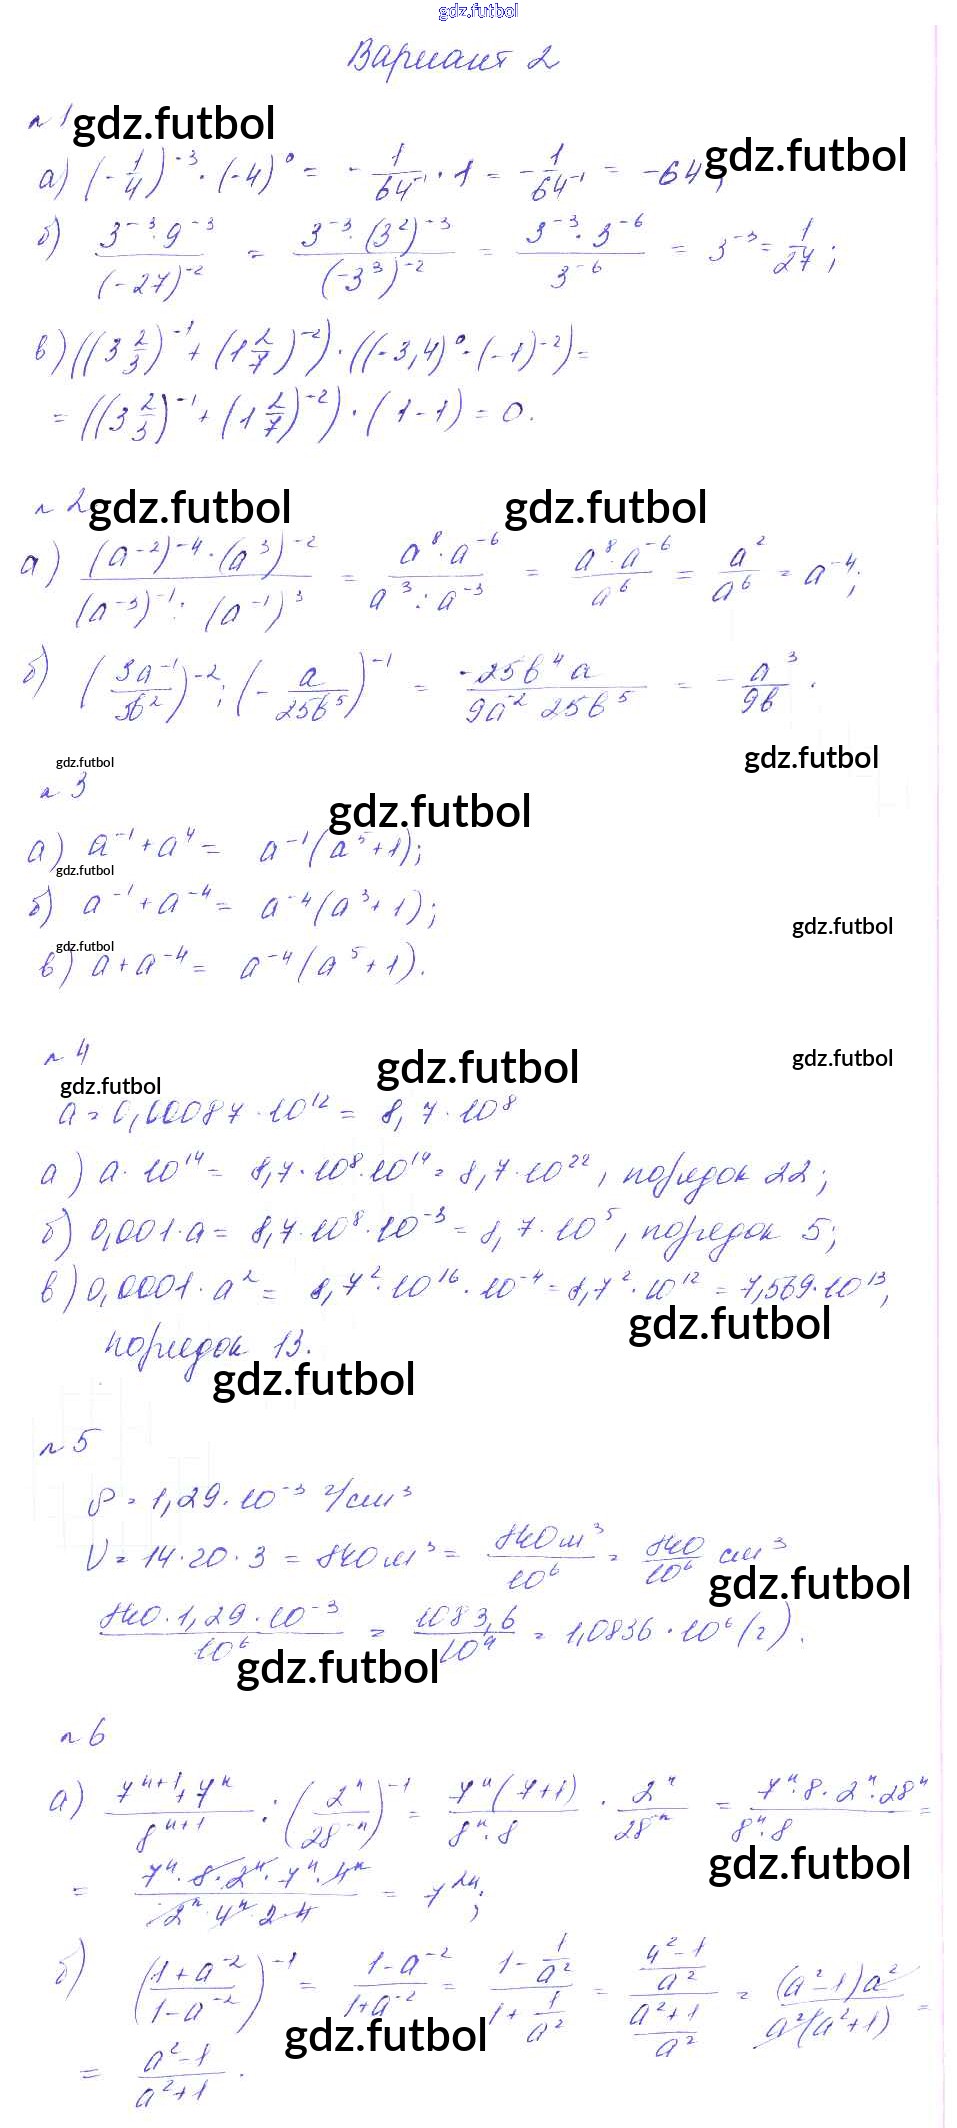 gdz.futbol
Вариант 2
№ 1 gdz.futbol
а) (-1/4)^-3 · (-4)^0 = - 1/64^-1 · 1 = - 1/64^-1 = -64; gdz.futbol
б) 3^-3 · 9^-3 / (-27)^-2 = 3^-3 · (3^2)^-3 / (-3^3)^-2 = 3^-3 · 3^-6 / 3^-6 = 3^-3 = 1/27;
в) ((3 2/3)^-1 + (1 2/7)^-2) · ((-3,4)^0 - (-1)^-2) =
= ((3 2/3)^-1 + (1 2/7)^-2) · (1-1) = 0.
№ 2 gdz.futbol gdz.futbol
а) (a^-2)^-4 · (a^3)^-2 / (a^-3)^-1 : (a^-1)^3 = a^8 · a^-6 / a^3 : a^-3 = a^8 · a^-6 / a^6 = a^2 / a^6 = a^-4;
б) (3a^-1 / 5b^2)^-2 : (- a / 25b^5)^-1 = -25b^4 a / 9a^-2 25b^5 = - a^3 / 9b.
gdz.futbol
gdz.futbol
№ 3
gdz.futbol
а) a^-1 + a^4 = a^-1 (a^5+1);
gdz.futbol
б) a^-1 + a^-4 = a^-4 (a^3+1);
gdz.futbol
gdz.futbol
в) a + a^-4 = a^-4 (a^5+1).
№ 4
gdz.futbol gdz.futbol
gdz.futbol
a = 0,00087 · 10^12 = 8,7 · 10^8
а) a · 10^14 = 8,7 · 10^8 · 10^14 = 8,7 · 10^22, порядок 22;
б) 0,001 · a = 8,7 · 10^8 · 10^-3 = 8,7 · 10^5, порядок 5;
в) 0,0001 · a^2 = 8,7^2 · 10^16 · 10^-4 = 8,7^2 · 10^12 = 7,569 · 10^13,
gdz.futbol
порядок 13.
gdz.futbol
№ 5
ρ = 1,29 · 10^-3 г/см^3
V = 14 · 20 · 3 = 840 м^3 = 840 м^3 / 10^6 = 840 / 10^6 см^3
gdz.futbol
840 · 1,29 · 10^-3 / 10^6 = 1083,6 / 10^9 = 1,0836 · 10^6 (г).
gdz.futbol
№ 6
а) 7^n+1 + 7^n / 8^n+1 : (2^n / 28^-n)^-1 = 7^n (7+1) / 8^n · 8 · 2^n / 28^-n = 7^n · 8 · 2^n · 28^n / 8^n · 8 =
gdz.futbol
= 7^n · 8 · 2^n · 7^n · 4^n / 2^n · 4^n · 2 · 4 = 7^2n;
б) (1+a^-2 / 1-a^-2)^-1 = 1-a^-2 / 1+a^-2 = 1 - 1/a^2 / 1 + 1/a^2 = 4^2-1 / a^2 / a^2+1 / a^2 = (a^2-1)a^2 / a^2(a^2+1) =
gdz.futbol
= a^2-1 / a^2+1.